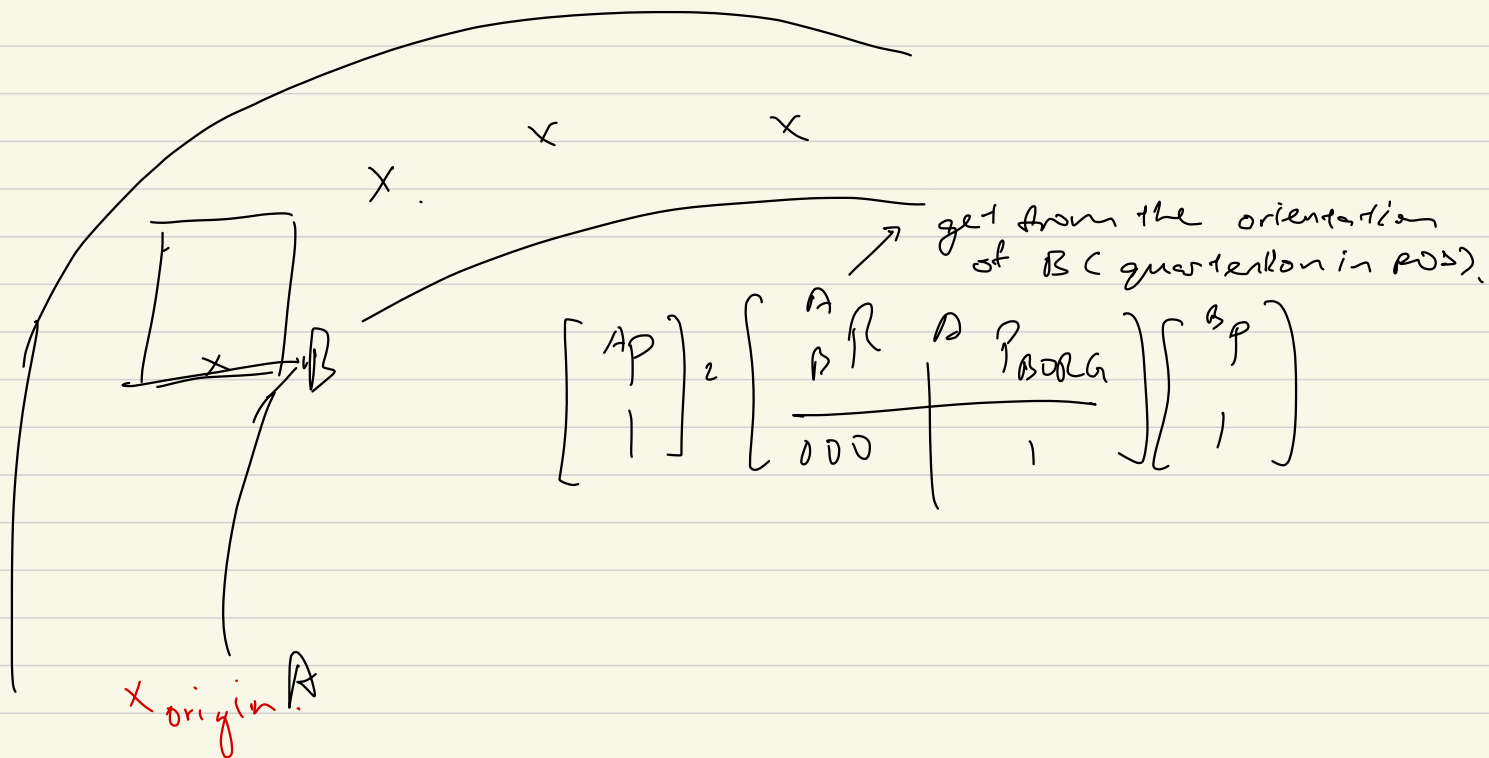 x
x
x
get from the orientation
of B (quartenion in ROS).
x
B
[ᴬP] = [ᴬ_B R | ᴬP_BORG] [ᴮP]
[1] [0 0 0 | 1] [1]
x origin. A